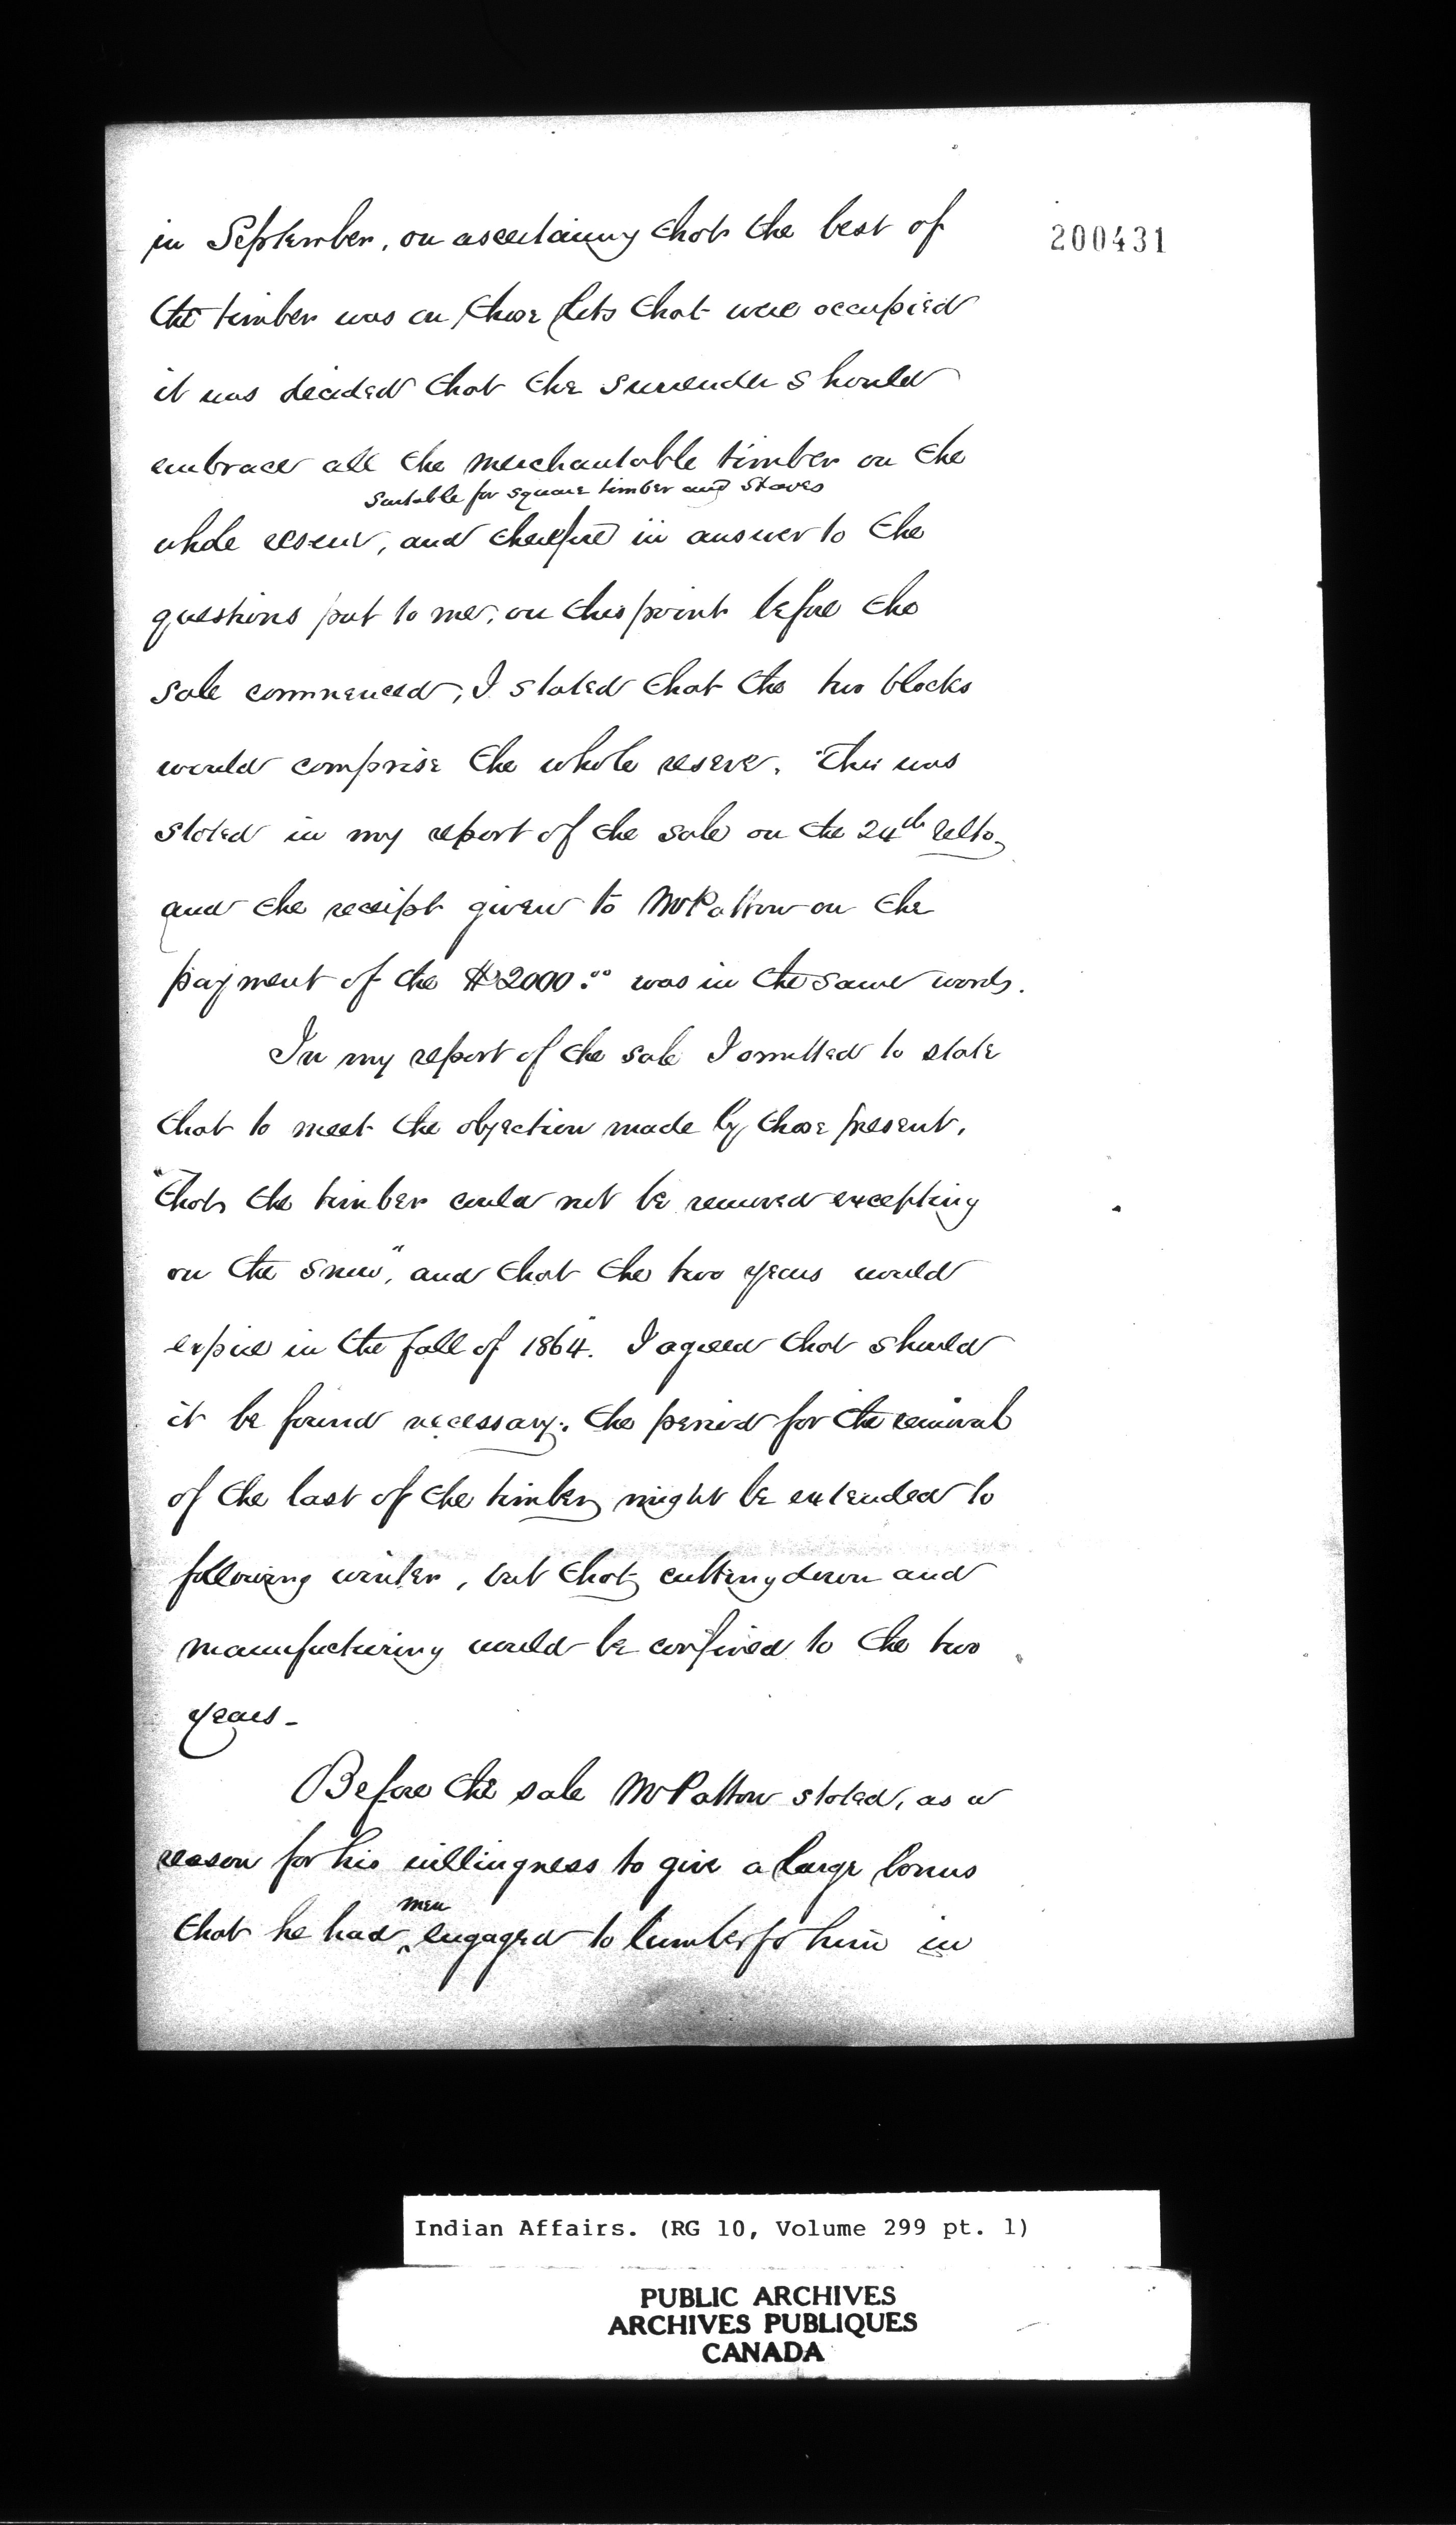 200431
in September, on ascertaining that the best of
the timber was on those lots that were occupied
it was decided that the surrender should
embrace all the merchantable timber on the
suitable for square timber and staves
whole reserve, and therefore in answer to the
questions put to me, on this point before the
sale commenced, I stated that the two blocks
would comprise the whole reserve. This was
stated in my report of the sale on the 24th ulto
and the receipt given to Mr Patton on the
payment of the $2000.00 was in the same words.
In my report of the sale I omitted to state
that to meet the objection made by those present,
"that the timber could not be removed excepting
on the snow", and that the two years would
expire in the fall of 1864. I agreed that should
it be found necessary, the period for the removal
of the last of the timber might be extended to
following winter, but that cutting down and
manufacturing would be confined to the two
years -
Before the sale Mr Patton stated, as a
reason for his willingness to give a large bonus
men
that he had ^ engaged to lumber for him in
Indian Affairs. (RG 10, Volume 299 pt. 1)
PUBLIC ARCHIVES
ARCHIVES PUBLIQUES
CANADA